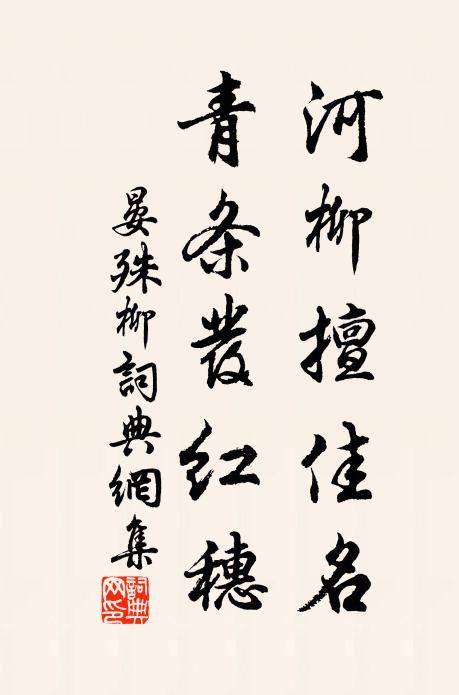 河柳擅佳名
青条發红穗
晏殊柳詞典網集
詞典网印